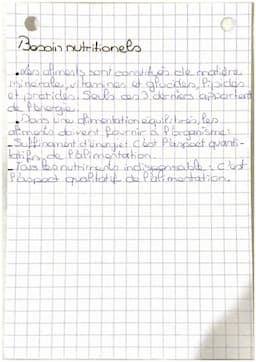 Besoin nutritionels
• Les aliments sont constitués de matière
minérale, vitamines et glucides, lipides
et protides. Seuls ces 3 derniers apportent
de l'énergie.
• Dans une alimentation équilibrés, les
aliments doivent fournir à l'organisme:
- Suffisament d'énergie: C'est l'aspect quanti-
tatifs, de l'alimentation.
- Tous les nutriments indispensable: c'est
l'aspect qualitatif de l'alimentation.